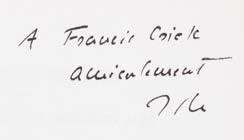 A Francis Crick
amicalement